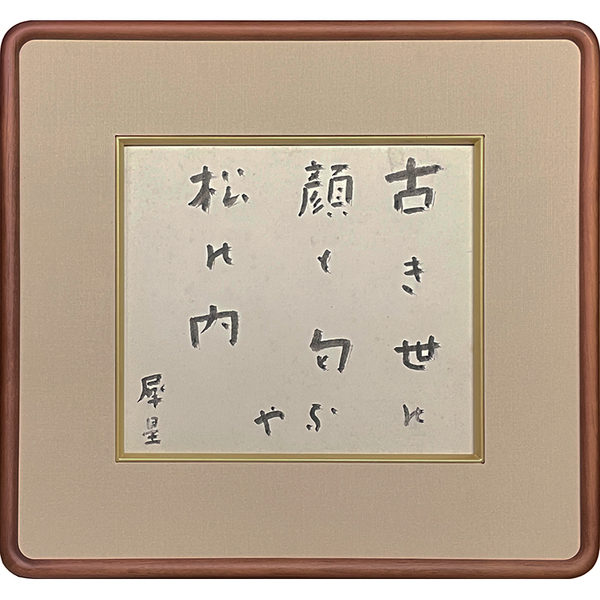 古き世の
顔も匂ふ
や
松の内
犀星